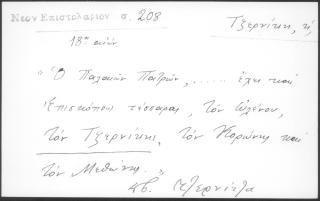 Νεον Επιστολαριον σ. 208
Τζερνίκη, ἡ
18ος αιών
"Ὁ Παλαιῶν Πατρῶν, ...... ἔχει καὶ
Ἐπισκόπους τέσσαρας, τὸν Ὠλένου,
τὸν Τζερνίκης, τὸν Κορώνης καὶ
τὸν Μεθώνης."
Τζερνίτζα